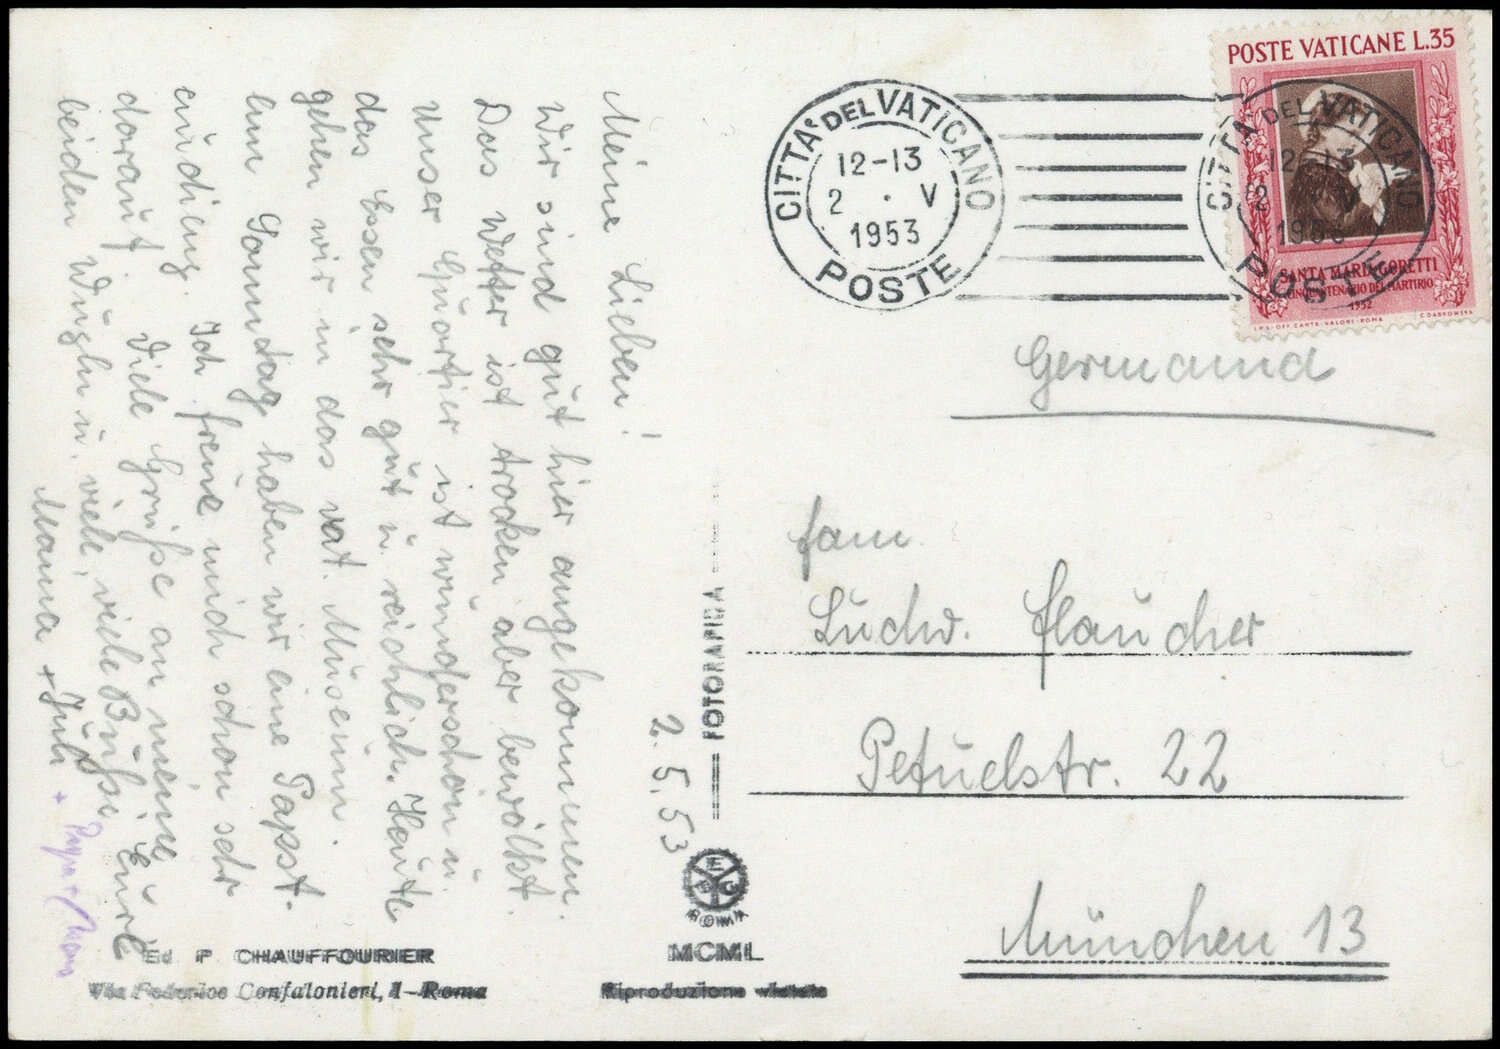 Meine Lieben!
Wir sind gut hier angekommen.
Das Wetter ist trocken aber bewölkt.
Unser Quartier ist wunderschön u.
das Essen sehr gut u. reichlich. Heute
gehen wir in das vat. Museum.
Am Sonntag haben wir eine Papst-
audienz. Ich freue mich schon sehr
darauf. Viele Grüße an meine
beiden u. viele, viele Bußi Eure
Mama + Juli +
2.5.53
POSTE VATICANE L.35
SANTA MARIA GORETTI
CINQUANTENARIO DEL MARTIRIO
1952
I.P.S.-OFF. CARTE-VALORI-ROMA
C. DABROWSKA
CITTA' DEL VATICANO
12-13
2 · V
1953
POSTE
CITTA' DEL VATICANO
12-13
2 · V
1953
POSTE
Germania
Fam.
Ludw. Flaucher
Petuelstr. 22
München 13
FOTORAPIDA
ROMA
MCML
Riproduzione vietata
Ed P CHAUFFOURIER
Via Federico Confalonieri, 1-Roma